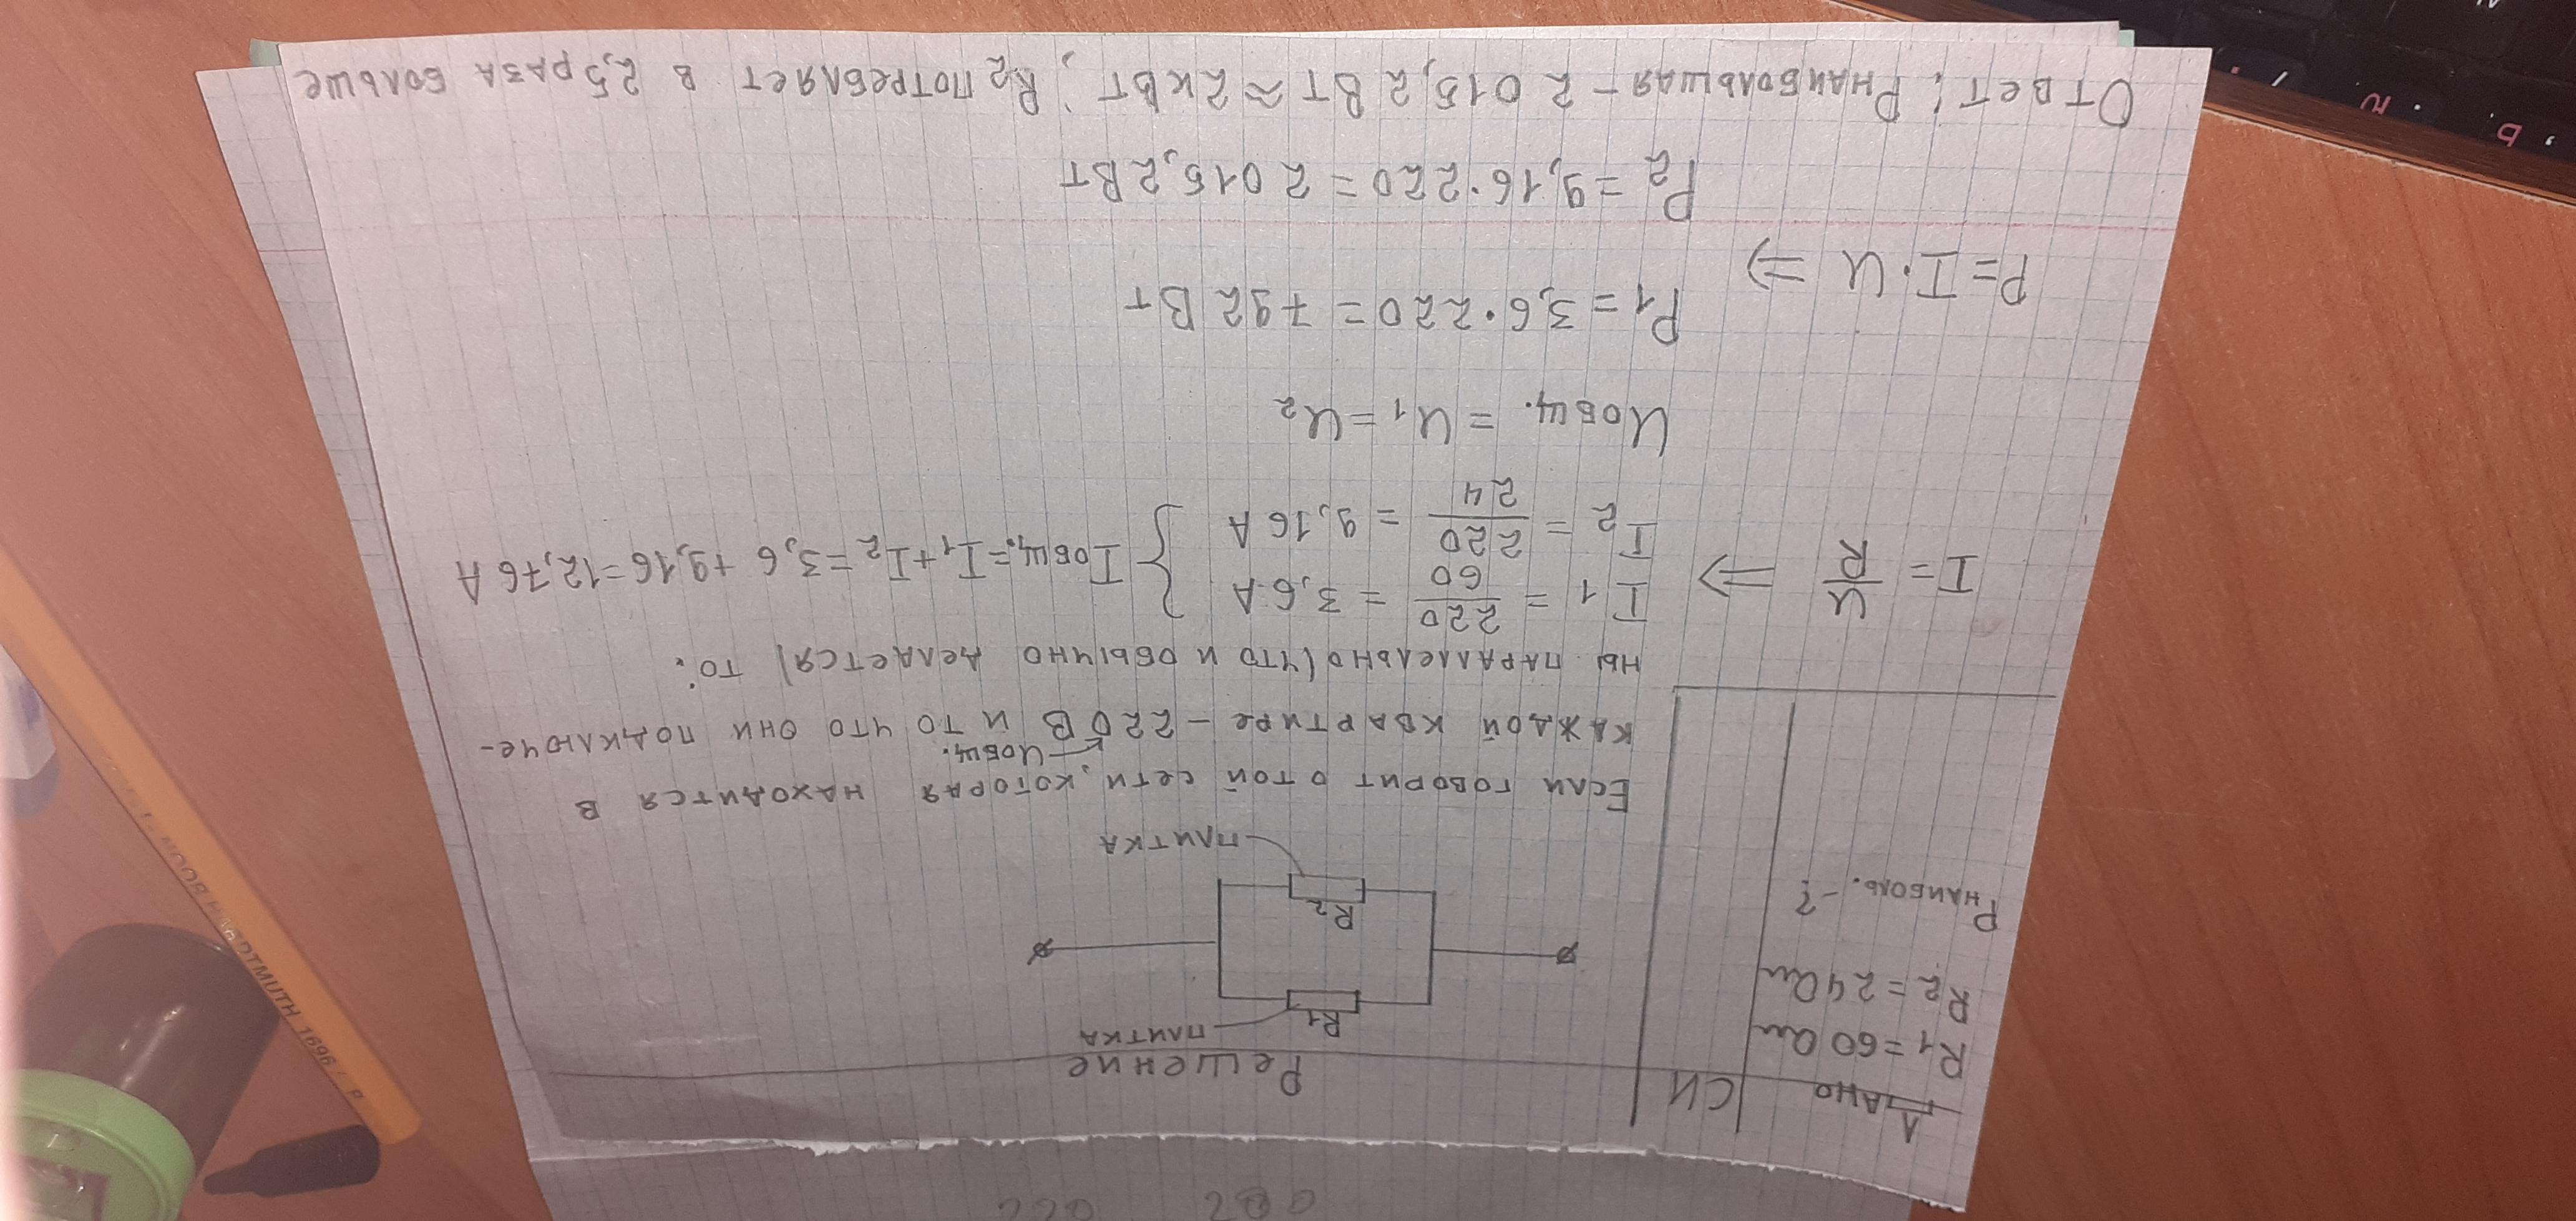 Дано
СИ
Решение
R1 = 60 Ом
R2 = 24 Ом
Pнаиболь. - ?
плитка
R1
R2
плитка
Если говорит о той сети, которая находится в
Uобщ.
каждой квартире - 220 В и то что они подключе-
ны паралельно (что и обычно делается) то:
I = U/R ⇒
I1 = 220/60 = 3,6 А
I2 = 220/24 = 9,16 А
} Iобщ. = I1 + I2 = 3,6 + 9,16 = 12,76 А
Uобщ. = U1 = U2
P = I · U ⇒
P1 = 3,6 · 220 = 792 Вт
P2 = 9,16 · 220 = 2 015,2 Вт
Ответ: Pнаибольшая - 2 015,2 Вт ≈ 2 кВт; R2 потребляет в 2,5 раза больше
HARDTMUTH 1696